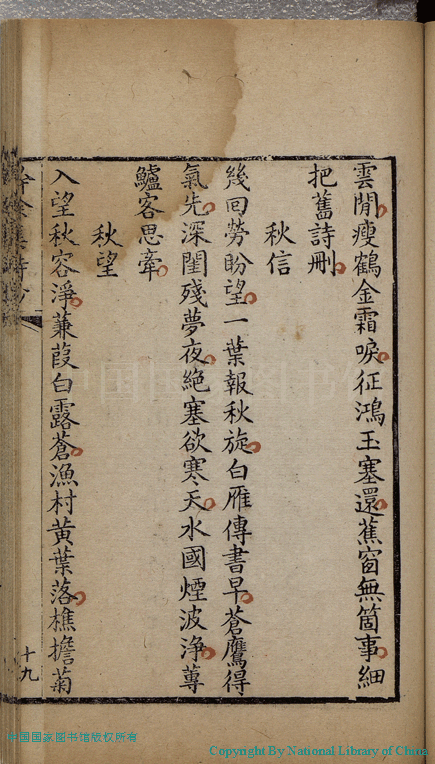 雲閒瘦鶴金霜唳征鴻玉塞還蕉窗無箇事細
把舊詩刪
秋信
幾回勞盼望一葉報秋旋白雁傳書早蒼鷹得
氣先深閨殘夢夜絕塞欲寒天水國煙波淨蓴
鱸客思牽
秋望
入望秋容淨蒹葭白露蒼漁村黃葉落樵擔菊
十九
中国国家图书馆
中国国家图书馆版权所有
Copyright By National Library of China